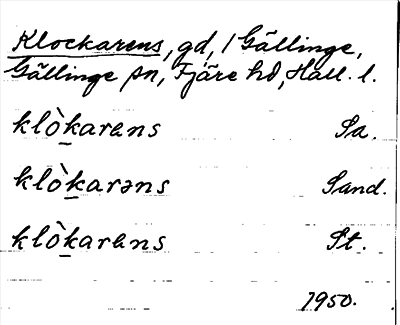 Klockarens, gd, 1 Gällinge,
Gällinge sn, Fjäre hd, Hall. l.
klò̱karens Sa.
klò̱karəns Sand.
klò̱karens St.
1950.